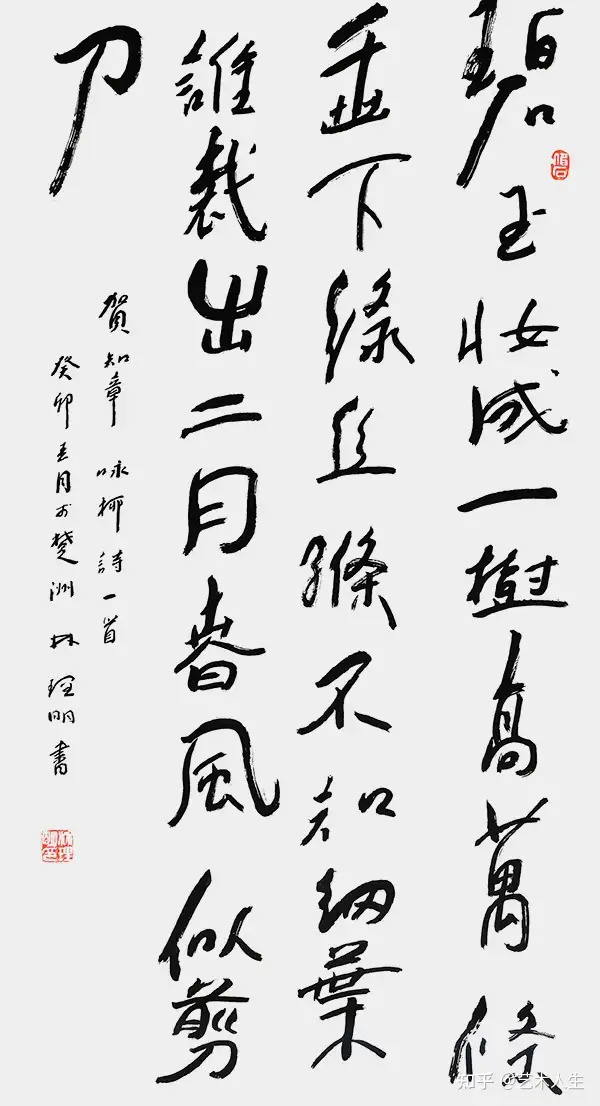 碧玉妆成一樹高萬條
垂下綠丝縧不知細葉
誰裁出二月春風似剪
刀
賀知章 咏柳詩一首
癸卯五月於楚洲 林理明書
知乎 @艺术人生